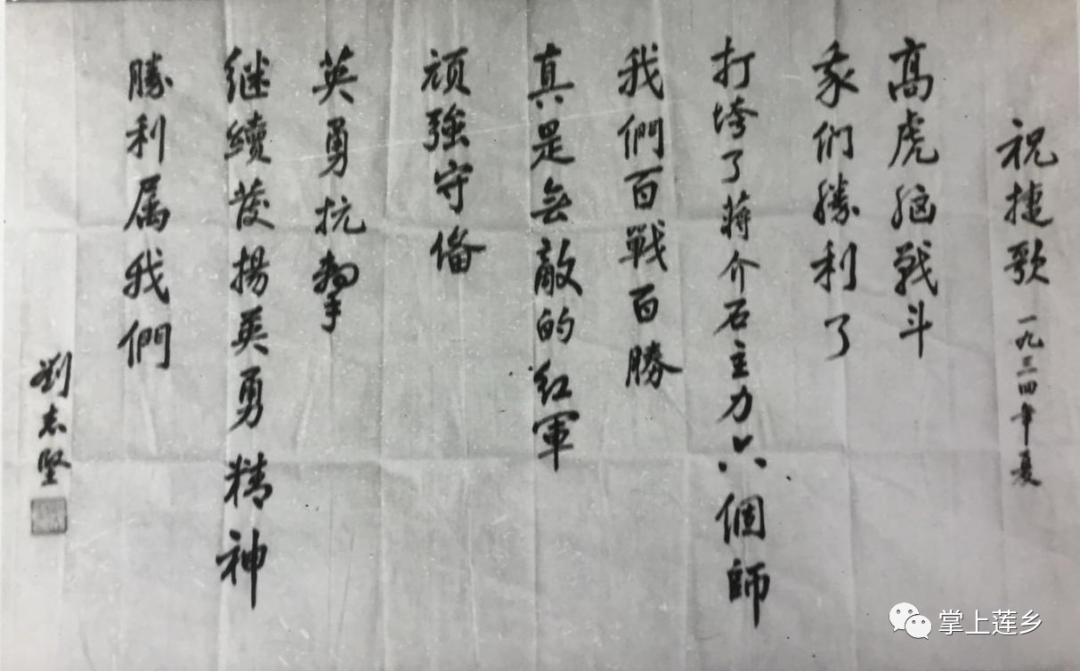 祝捷歌 一九三四年夏
高虎脑戰斗
我們勝利了
打垮了蔣介石主力六個師
我們百戰百勝
真是無敵的红軍
頑強守俻
英勇抗擊
继續發揚英勇精神
勝利属我們
劉志堅
掌上莲乡